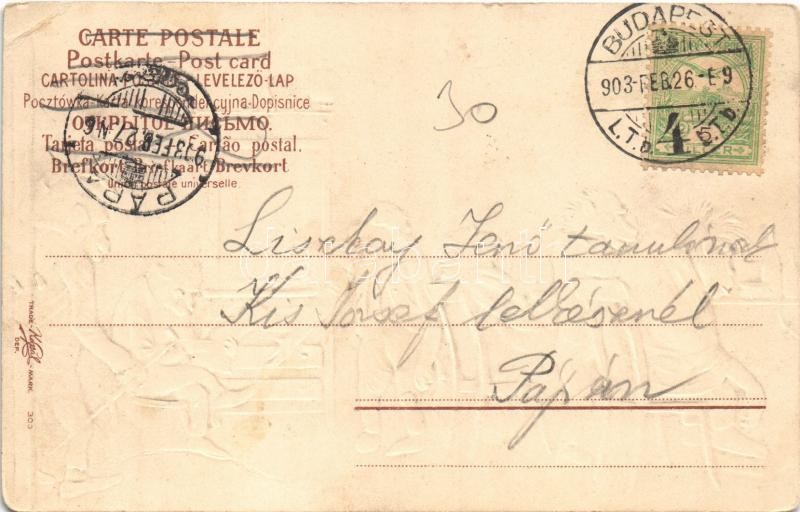 CARTE POSTALE
Postkarte - Post card
CARTOLINA LEVELEZÖ-LAP
Pocztówka-Karta korespondencyjna-Dopisnice
ОТКРЫТОЕ ПИСЬМО.
Tarjeta postal. Cartão postal.
Brefkort-Brefkaart-Brevkort
Union postale universelle.
PÁPA
30
BUDAPEST
903-FEB.26-E9
L.T.b.
4 5
Liszkay Jenő tanulónak
Kis József
Pápán
TRADE-MARK.
DEP.
303
darabanth